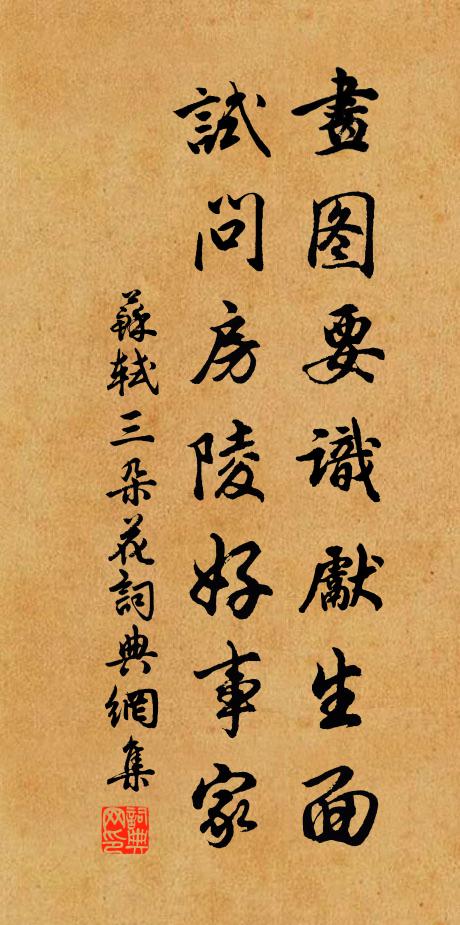 畫图要識獻生面
試問房陵好事家
蘇軾三朵花詞典網集
詞典网印